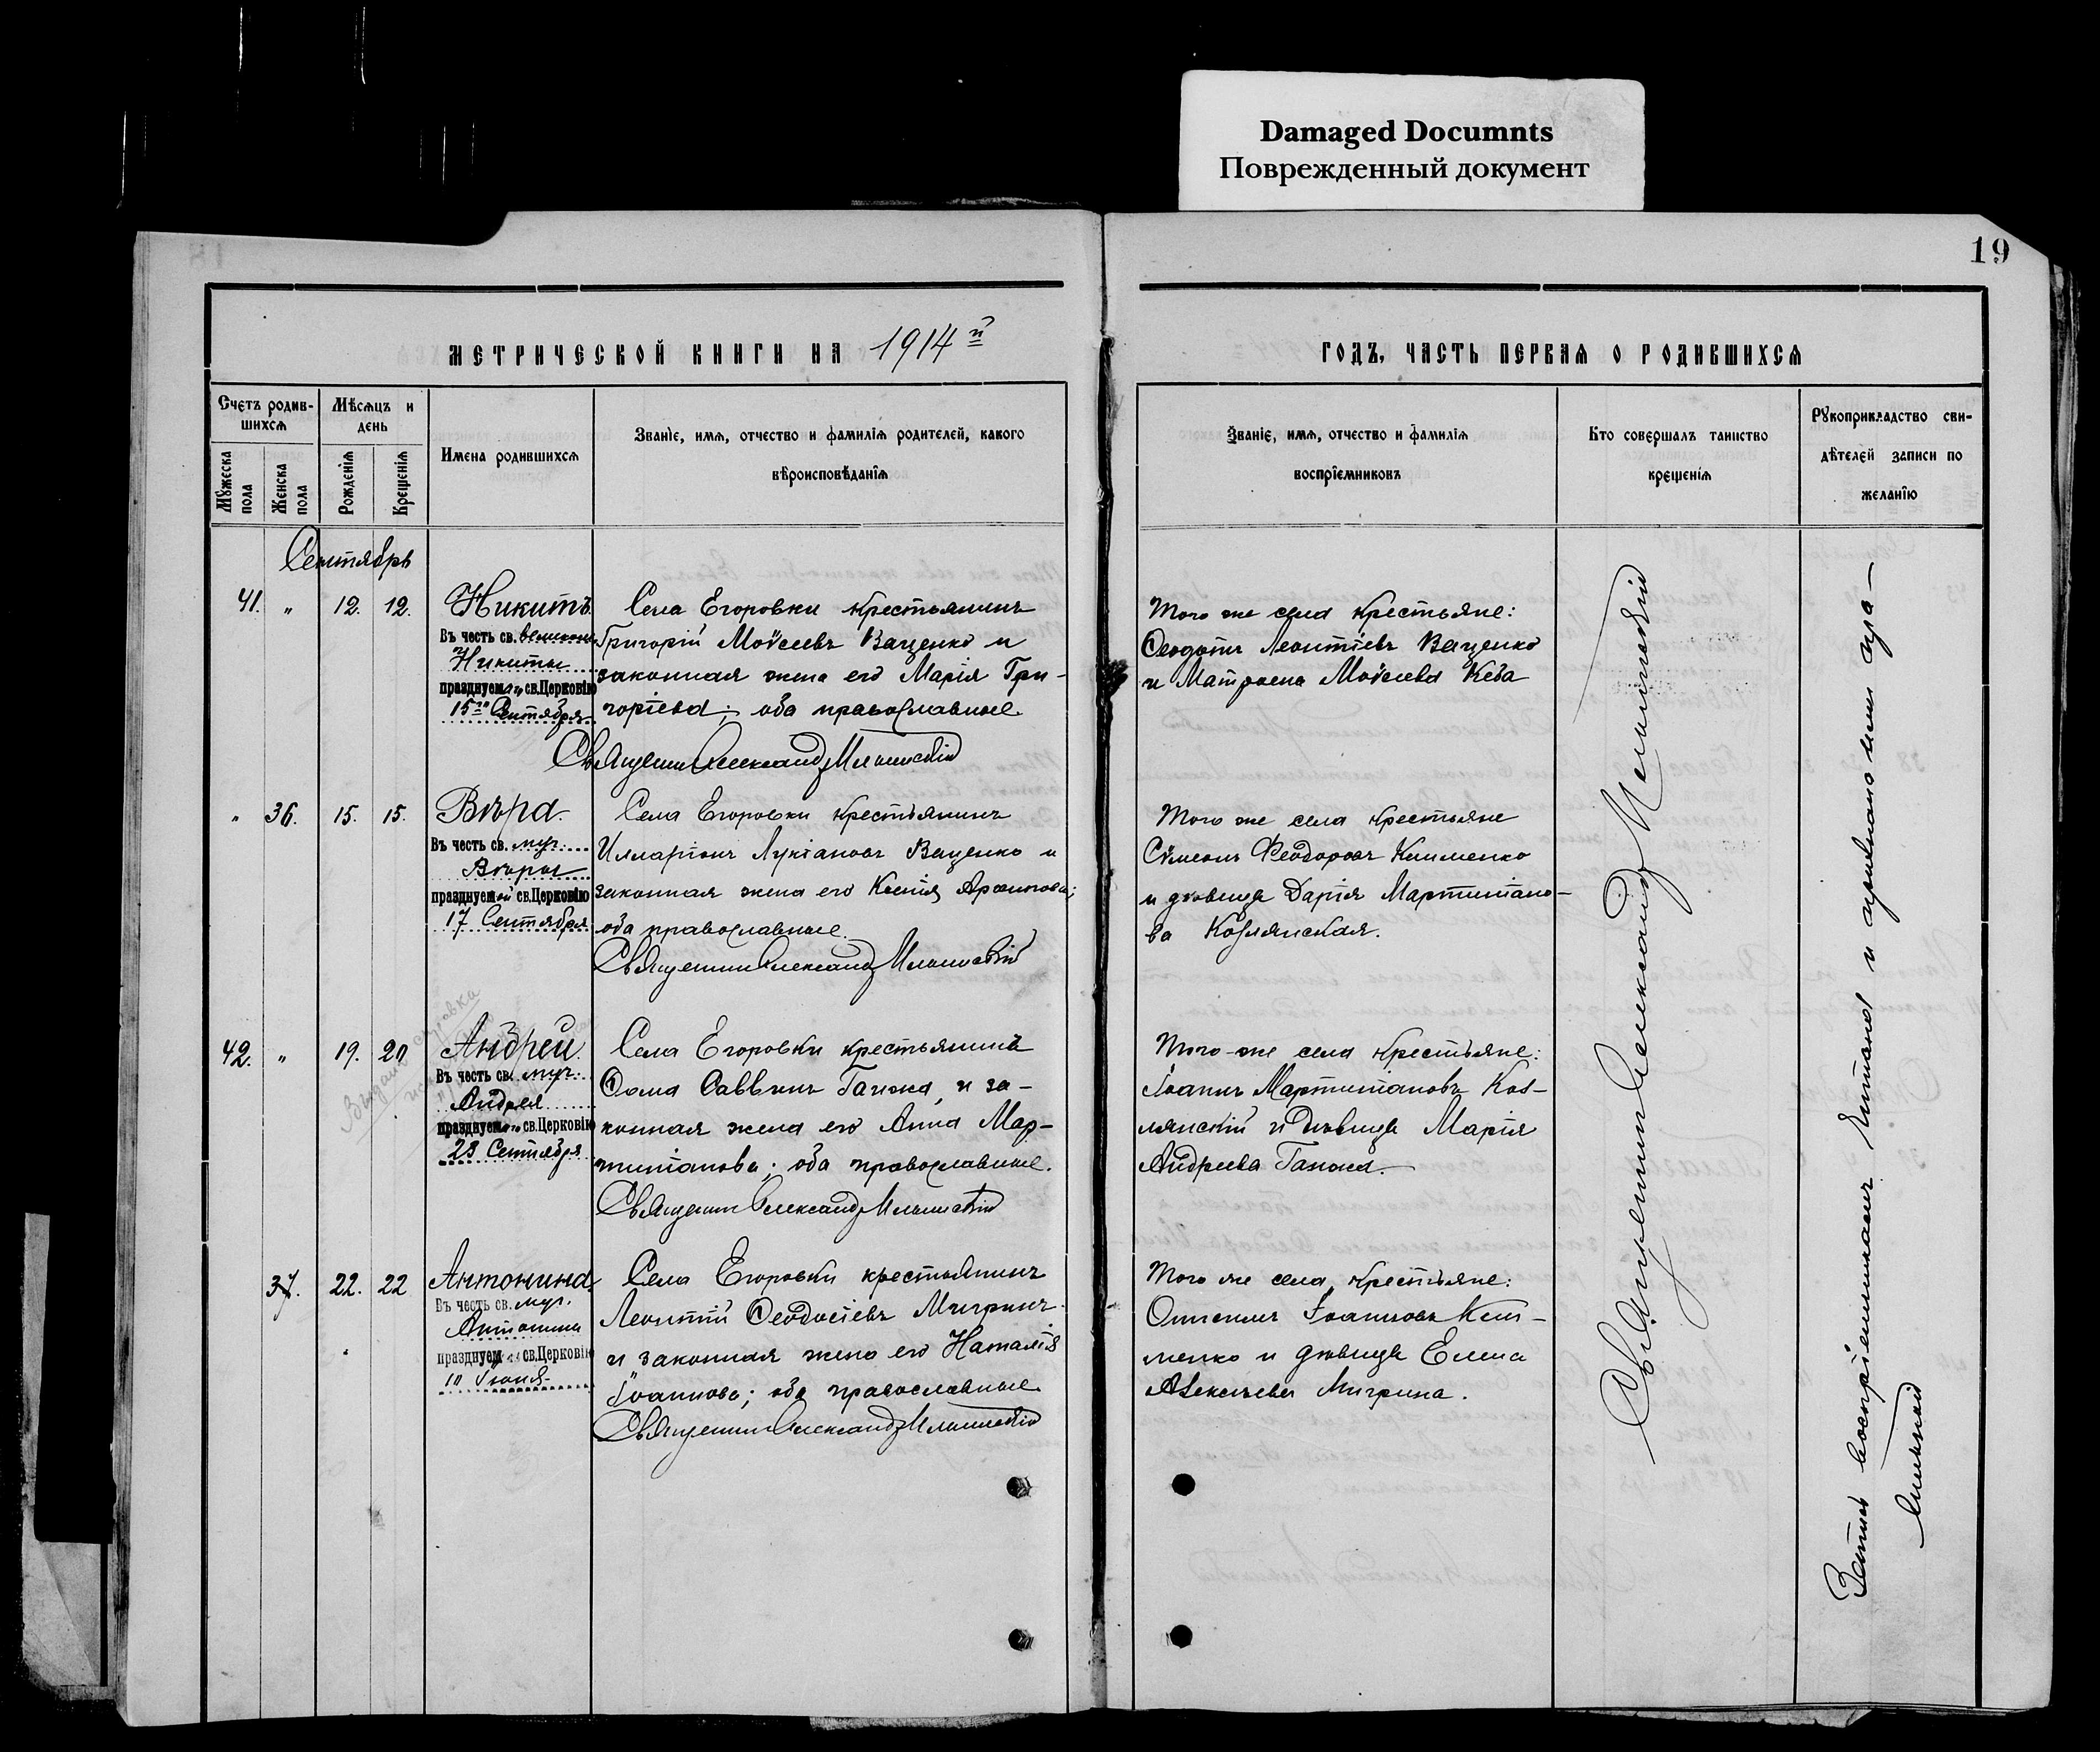 Damaged Documnts
Поврежденный документ
19
МЕТРИЧЕСКОЙ КНИГИ НА 1914й
ГОДЪ, ЧАСТЬ ПЕРВАЯ О РОДИВШИХСЯ
Счетъ родив-
шихся
Мѣсяцъ и
день
Мужеска
пола
Женска
пола
Рожденія
Крещенія
Имена родившихся
Званіе, имя, отчество и фамилія родителей, какого
вѣроисповѣданія
Званіе, имя, отчество и фамилія
воспріемниковъ
Кто совершалъ таинство
крещенія
Рукоприкладство сви-
дѣтелей записи по
желанію
Сентябрь
41. " 12. 12.
Никита
Въ честь св.
Никиты
празднуемаго св.Церковію
15го Сентября
Села Егоровки крестьянинъ
Григорій Моѵсеевъ Ваценко и
законная жена его Марія Гри-
горіева; оба православные.
Священникъ Александръ
Того же села крестьяне:
Ѳеодотъ Леонтіевъ Ваценко
и Матрона Моѵсеева Кеба
" 36. 15. 15.
Вѣра.
Въ честь св. муч.
Вѣры
празднуемой св.Церковію
17 Сентября
Села Егоровки крестьянинъ
Илларіонъ Лукіановъ Ваценко и
законная жена его Ксенія;
оба православные.
Священникъ Александръ
Того же села крестьяне
Сѵмеонъ Ѳеодоровъ Клименко
и дѣвица Дарія Мартиніано-
ва Козлянская.
42. " 19. 20
Андрей.
Въ честь св. муч.
Андрея
празднуемаго св.Церковію
23 Сентября
Села Егоровки крестьянинъ
Ѳома Саввинъ Гапона, и за-
конная жена его Анна Мар-
тиніанова; оба православные.
Священникъ Александръ
Того-же села крестьяне:
Іоаннъ Мартиніановъ Коз-
лянскій и дѣвица Марія
Андреева Гапона.
37. 22. 22
Антонина.
Въ честь св. муч.
Антонины
празднуемой св.Церковію
10 Іюня
Села Егоровки крестьянинъ
Леонтій Ѳеодосіевъ Мигринъ
и законная жена его Наталія
Іоаннова; оба православные
Священникъ Александръ
Того же села, крестьяне:
Іоанновъ Кли-
менко и дѣвица Елена
Алексѣева Мигрина.
Священникъ Александръ
воспріемниками и